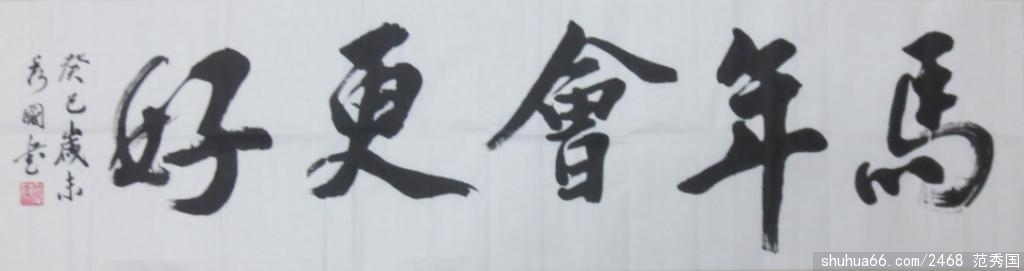 馬年會更好
癸巳歲末
秀國書
shuhua66.com/2468 范秀国